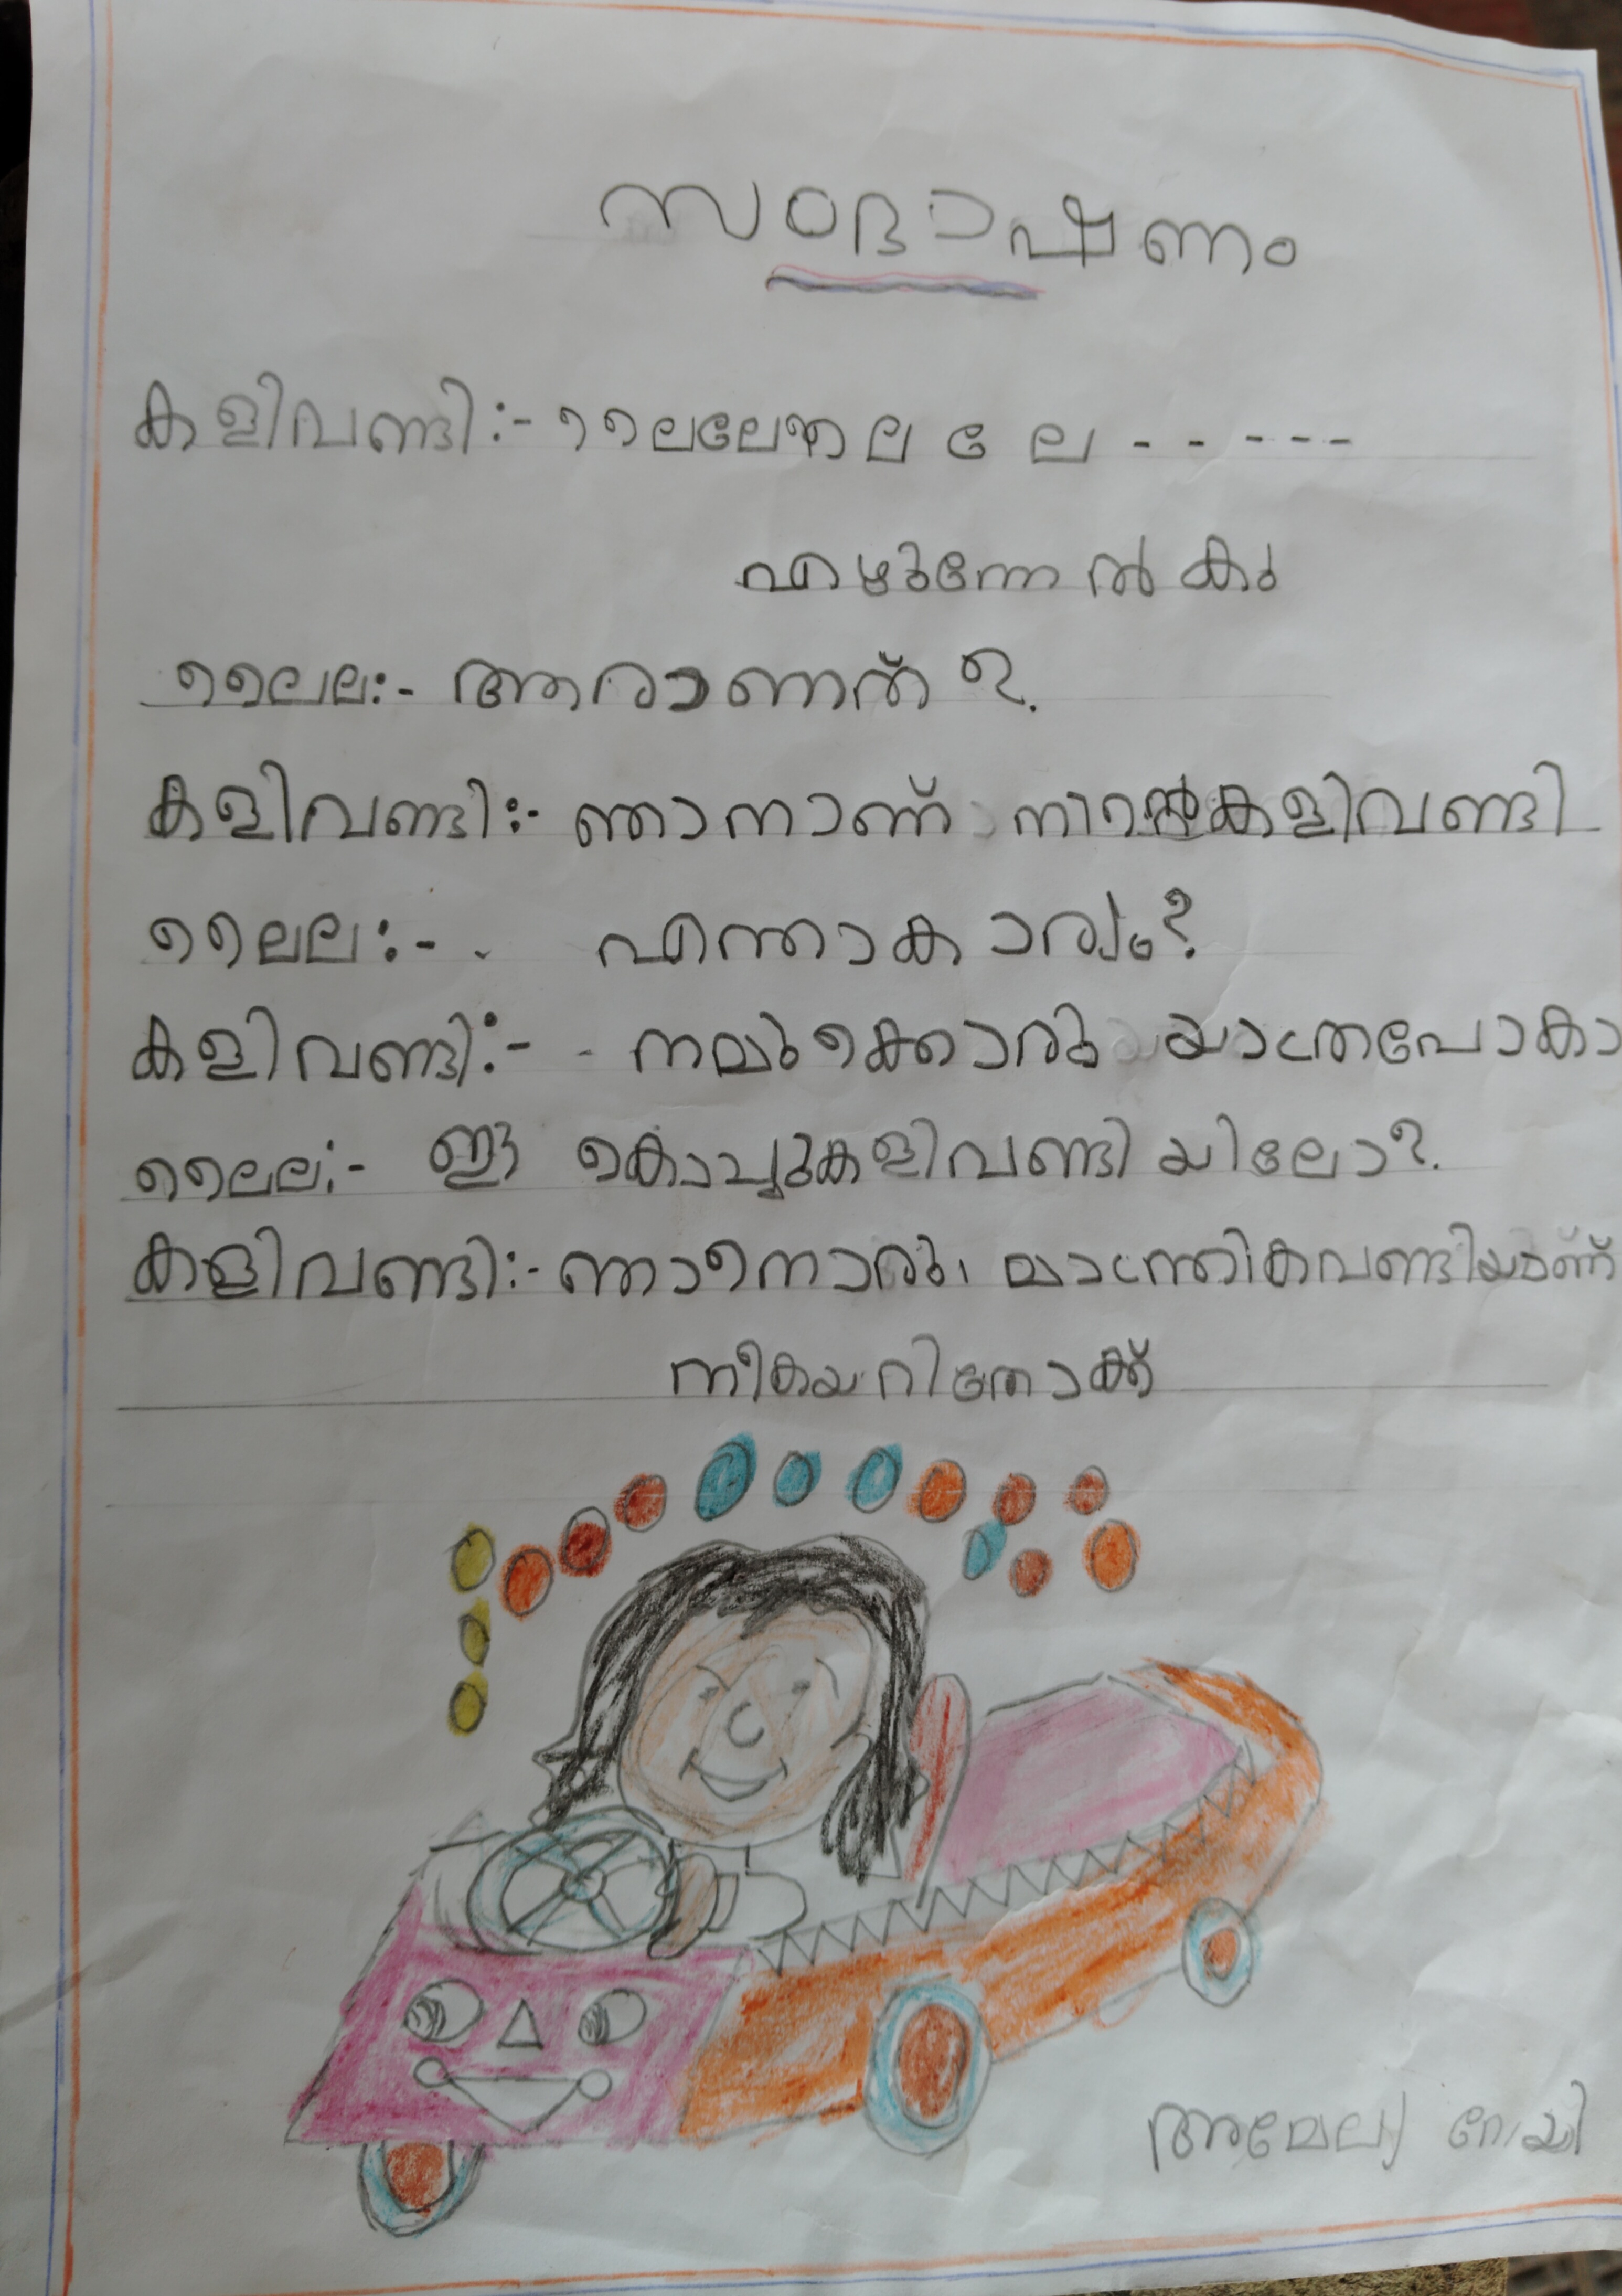 സംഭാഷണം
കളിവണ്ടി:- ലൈലേ ലൈ ലേ - - - - -
എഴുന്നേൽകു
ലൈല:- ആരാണത് ?.
കളിവണ്ടി:- ഞാനാണ് നിന്റെകളിവണ്ടി
ലൈല:- എന്താകാര്യം?
കളിവണ്ടി:- നമുക്കൊരു യാത്രപോകാ
ലൈല:- ഈ കൊച്ചുകളിവണ്ടിയിലോ?.
കളിവണ്ടി:- ഞാനൊരു മാന്ത്രികവണ്ടിയാണ്
നീകയറിനോക്ക്